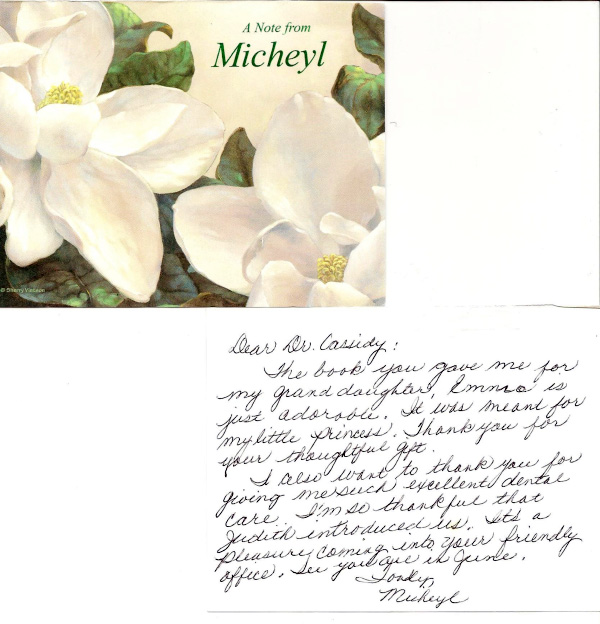 A Note from
Micheyl
© Sherry Vintson
Dear Dr. Cassidy:
The book you gave me for
my granddaughter, Emma is
just adorable. It was meant for
my little princess. Thank you for
your thoughtful gift.
I also want to thank you for
giving me such excellent dental
care. I'm so thankful that
Judith introduced us. Its a
pleasure coming into your friendly
office. See you all in June.
Fondly,
Micheyl